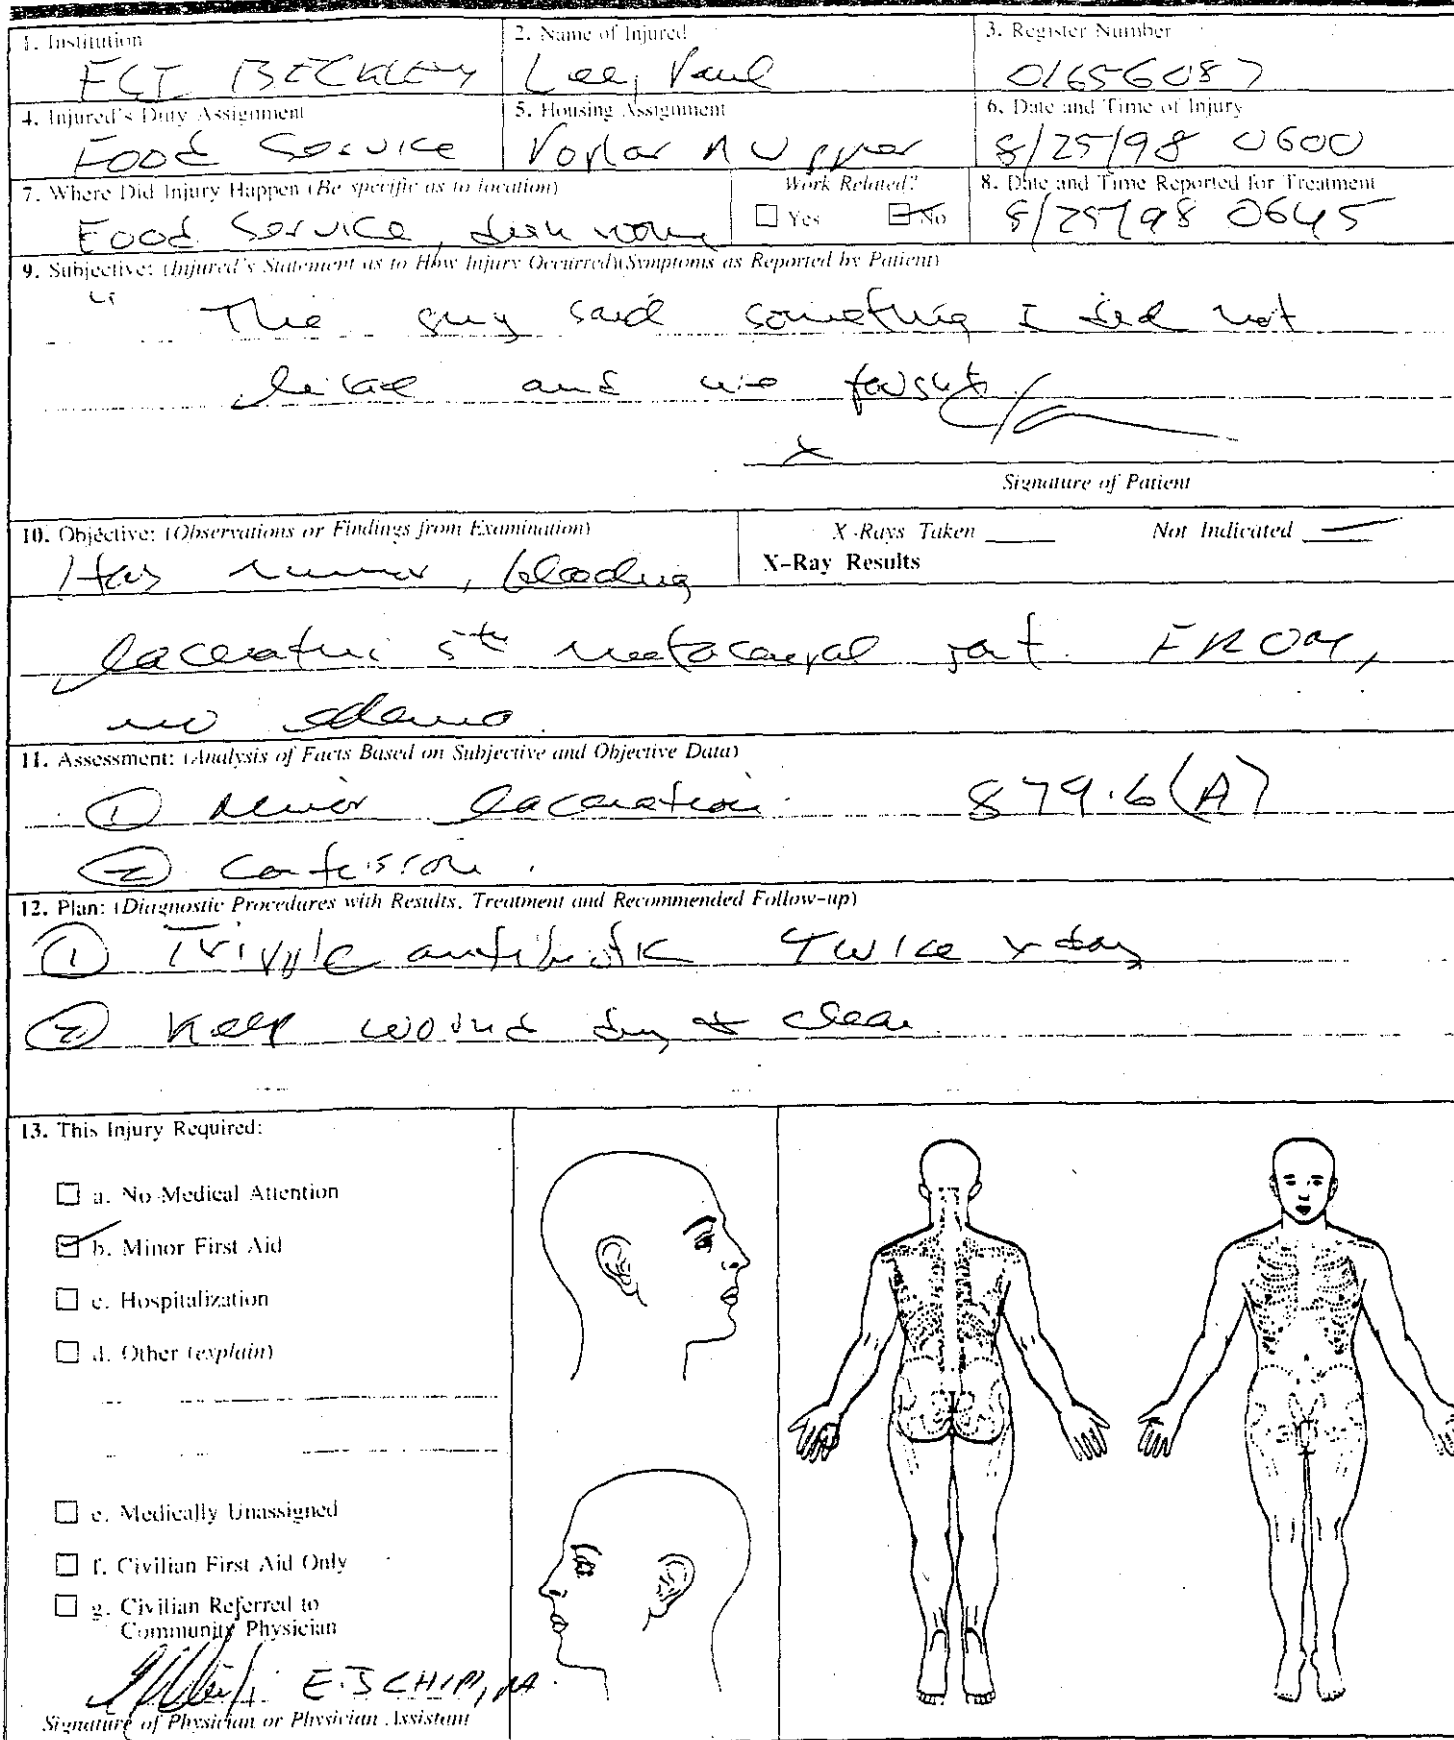 1. Institution
FCI BECKLEY
2. Name of Injured
Lee, Paul
3. Register Number
01656087
4. Injured's Duty Assignment
Food Service
5. Housing Assignment
Poplar A Upper
6. Date and Time of Injury
8/25/98 0600
7. Where Did Injury Happen (Be specific as to location)
Food Service, dish room
Work Related?
Yes No
8. Date and Time Reported for Treatment
8/25/98 0645
9. Subjective: (Injured's Statement as to How Injury Occurred)(Symptoms as Reported by Patient)
" The guy said something I did not
like and we fought.
x
Signature of Patient
10. Objective: (Observations or Findings from Examination)
X-Rays Taken Not Indicated
X-Ray Results
Has minor, bleeding
laceration 5th metacarpal joint. FROM,
no edema
11. Assessment: (Analysis of Facts Based on Subjective and Objective Data)
① Minor laceration. 879.6(A)
② Contusion.
12. Plan: (Diagnostic Procedures with Results, Treatment and Recommended Follow-up)
① Triple antibiotic twice x day
② Keep wound dry & clean
13. This Injury Required:
a. No Medical Attention
b. Minor First Aid
c. Hospitalization
d. Other (explain)
e. Medically Unassigned
f. Civilian First Aid Only
g. Civilian Referred to
Community Physician
E. SCHIP, PA.
Signature of Physician or Physician Assistant